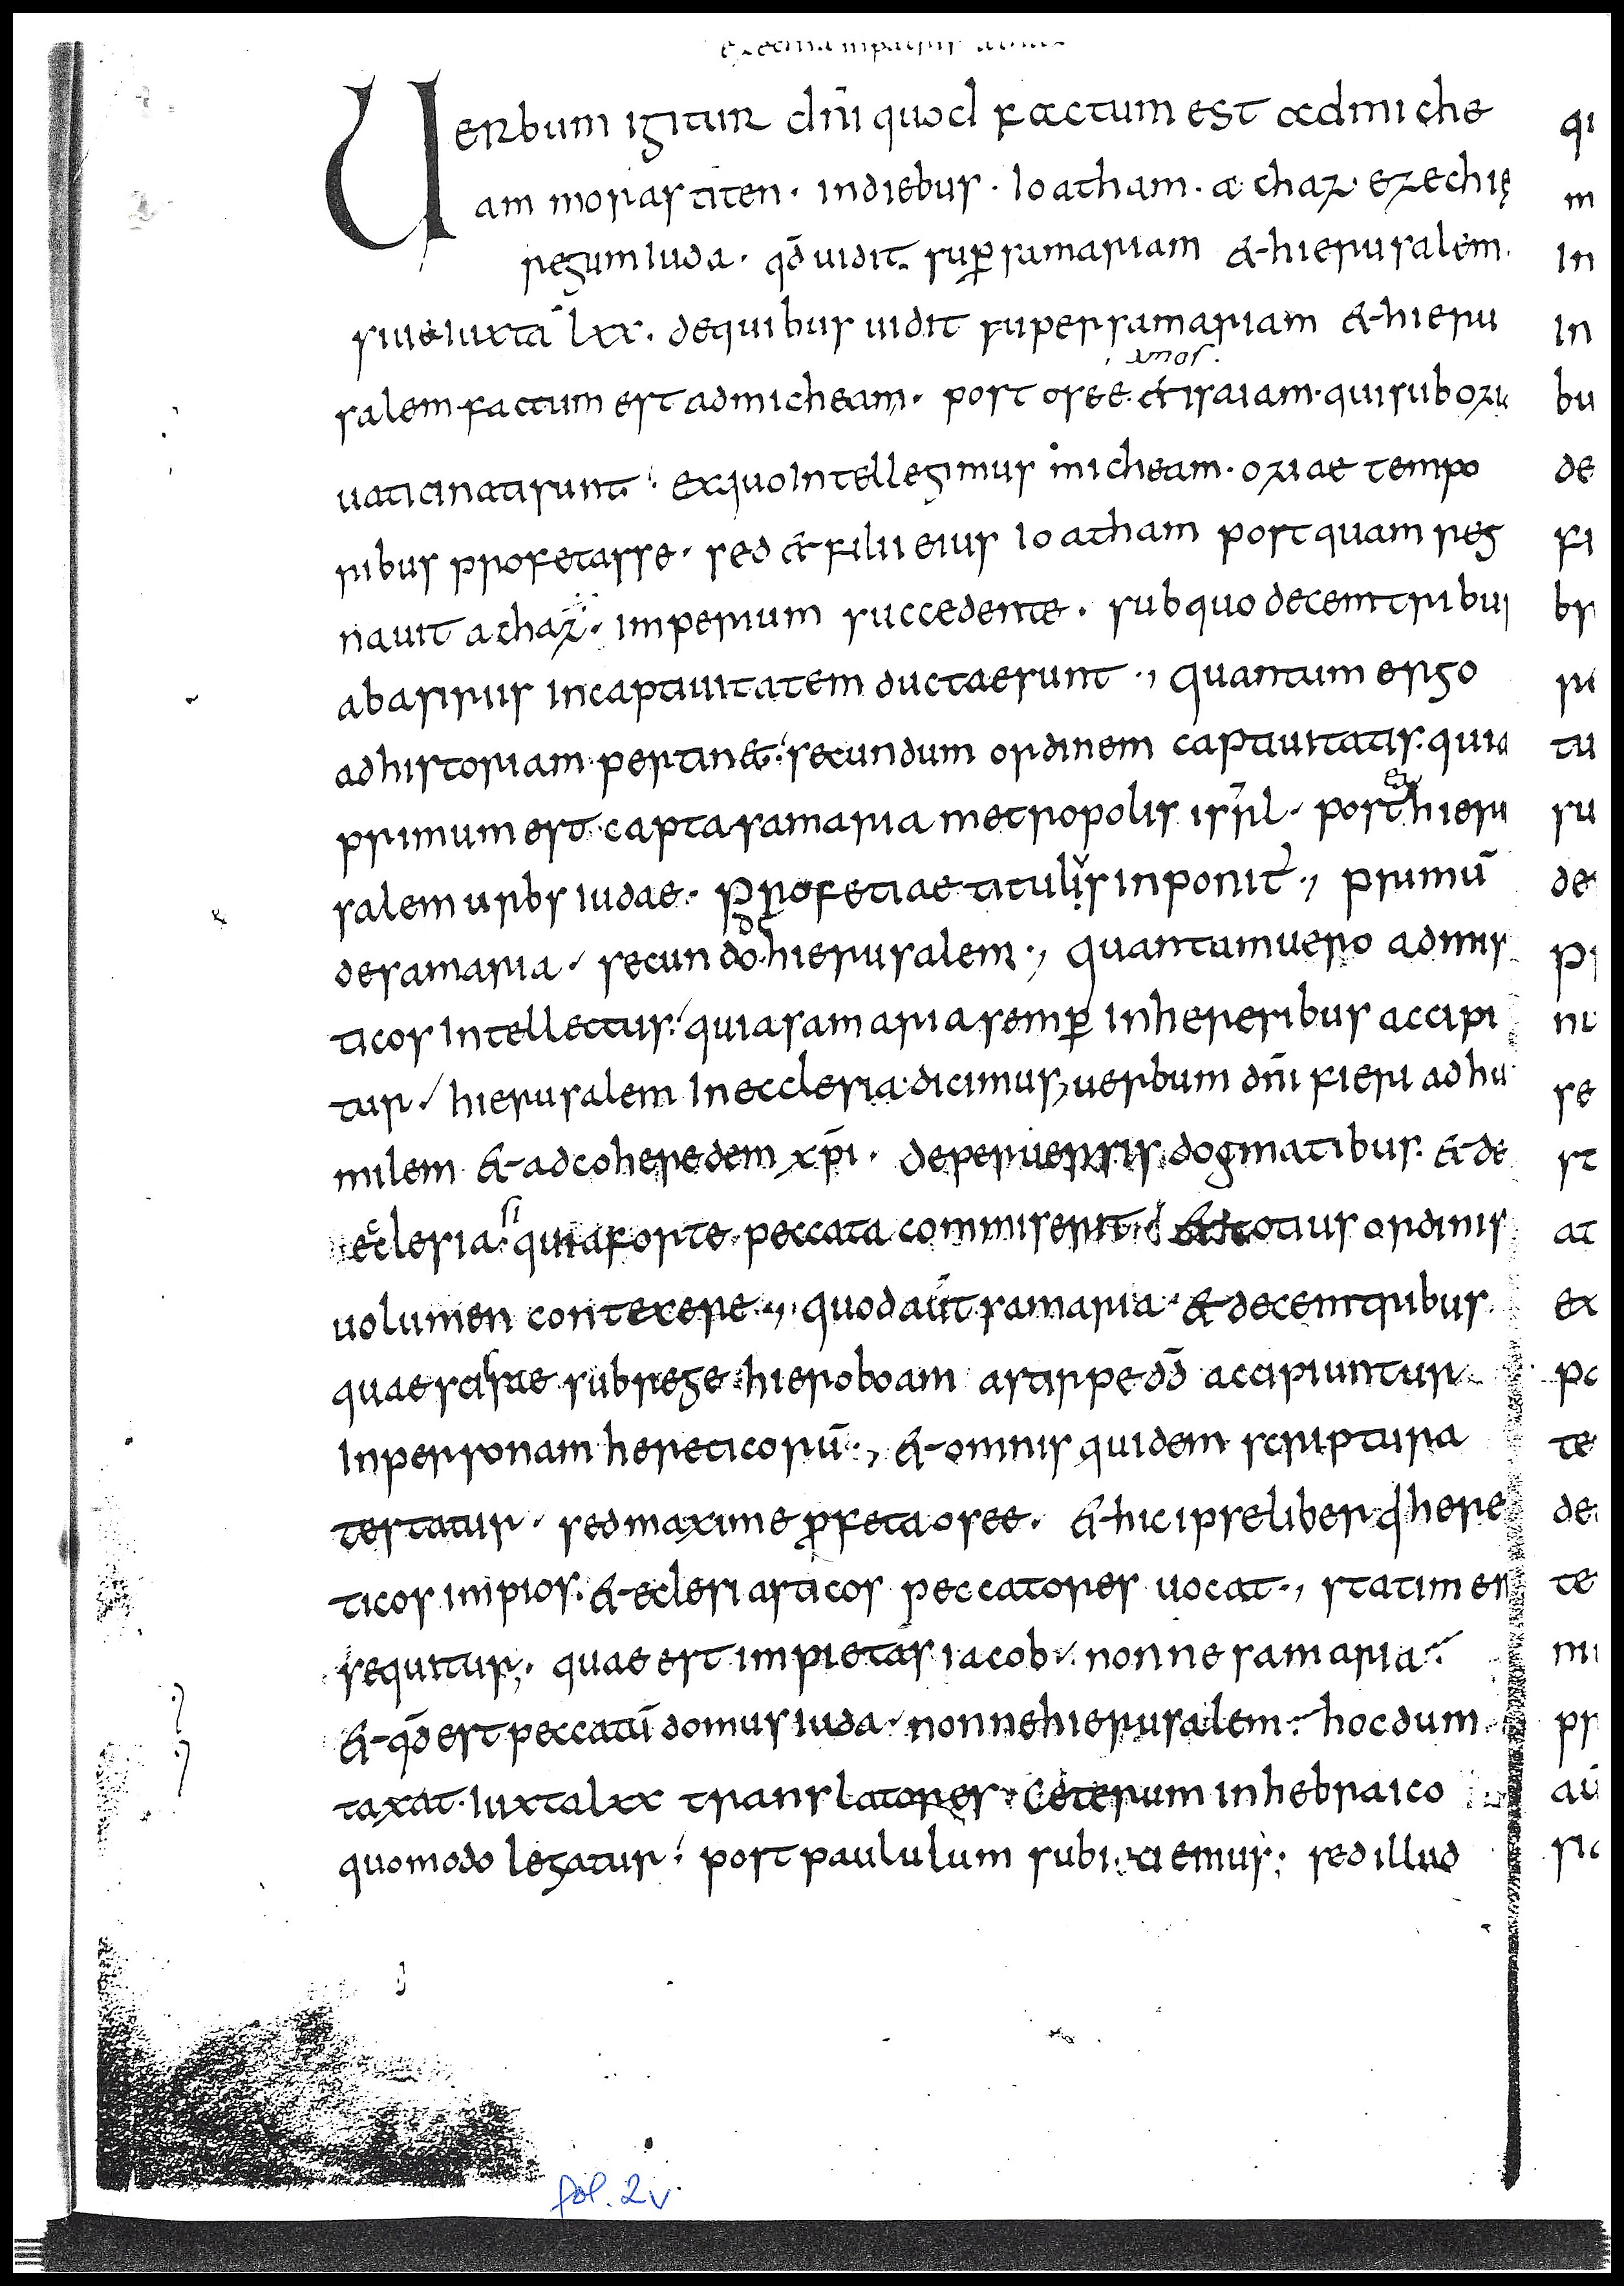 Uerbum igitur dn̄i quod factum est ad miche
am morastiten · in diebus · Ioatham · achaz · ezechię
regum Iuda · qd̄ uidit · suꝑ samariam & hierusalem ·
siue iuxta lxx · de quibus uidit super samariam & hieru
salem factum est ad micheam · post osee · & isaiam · qui sub ozia
amos ·
uaticinati sunt · ex quo Intellegimus micheam · oziae tempo
ribus profetasse · sed & filii eius Ioatham postquam reg
nauit achaz · imperium succedente · sub quo decem tribus
ab asiriis In captiuitatem ductae sunt ·, quantum ergo
ad historiam pertin& · secundum ordinem captiuitatis · quia
primum est capta samaria metropolis isrl · post hieru
ea
salem urbs iudae · Profetiae titulis inponit᷑ ·, primū
de samaria · secundo hierusalem ·, quantum uero ad mis
de
ticos Intellectus · quia samaria semꝑ In heresibus accipi
tur · hierusalem In ecclesia dicimus, uerbum dn̄i fieri ad hu
milem & ad coheredem xp̄i · de peruersis dogmatibus · & de
eclesia · quia forte peccata commiserit · & totius ordinis
si
uolumen contexere ·, quod aūt samaria · & decem tribus
quae scissae sub rege hieroboam a stirpe dd̄ accipiuntur ·
In personam hereticorū ·, & omnis quidem scriptura
testatur · sed maxime ꝓfeta osee · & hic ipse liber q here
ticos impios · & eclesiasticos peccatores uocat ·, statim en
sequitur, · quae est impietas iacob · nonne samaria ·
& qd̄ est peccatū domus iuda · nonne hierusalem · hoc dum
taxat · Iuxta lxx translatores · Ceterum in hebraico
quomodo legatur · post paululum subiciemus · sed illud
fol. 2v.